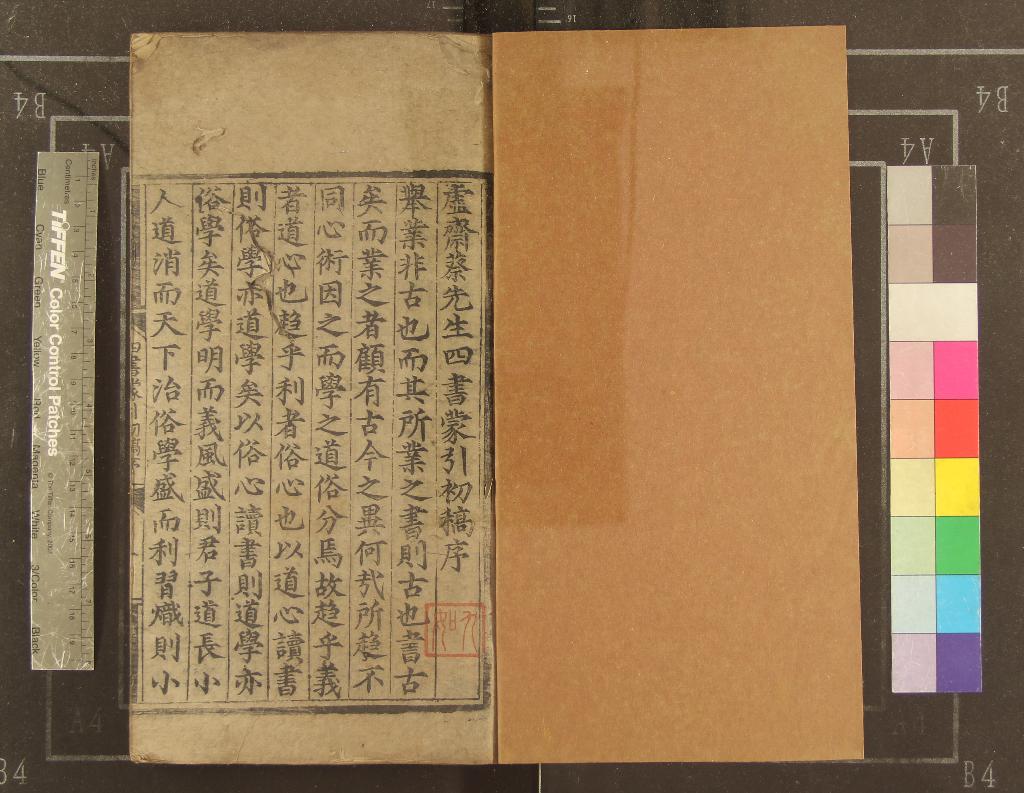 虛齋蔡先生四書蒙引初稿序
舉業非古也而其所業之書則古也書古
矣而業之者顧有古今之異何㦲所趋不
同心術因之而學之道俗分焉故趋乎義
者道心也趋乎利者俗心也以道心讀書
則俗學亦道學矣以俗心讀書則道學亦
俗學矣道學明而義風盛則君子道長小
人道消而天下治俗學盛而利習熾則小
四書蒙引初稿序
B4
B4
A4
A4
B4
B4
A4
A4
16
17
TIFFEN Color Control Patches
© The Tiffen Company, 2007
Centimetres
Inches
Blue
Cyan
Green
Yellow
Red
Magenta
White
3/Color
Black